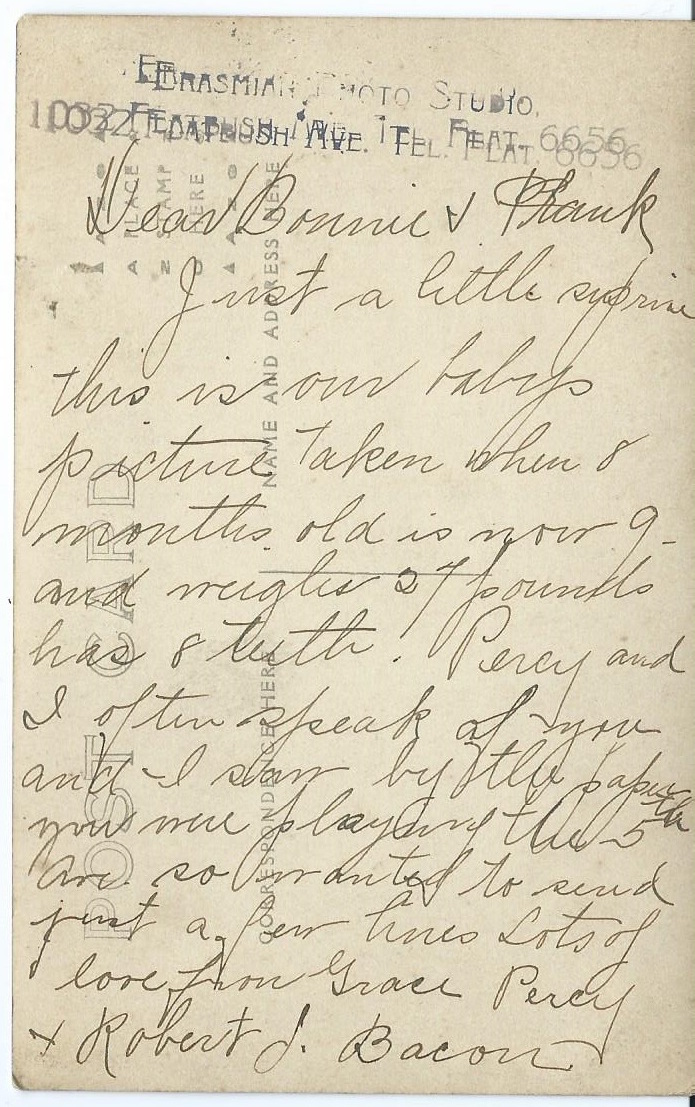 Erasmian Photo Studio,
1032 Flatbush Ave. Tel. Flat. 6656
Dear Bonnie & Frank
Just a little suprise
this is our babys
picture taken when 8
months old is now 9-
and weighs 27 pounds
has 8 teeth. Percy and
I often speak of you
and I saw by the paper
you were playing the 5th
Ave. so wanted to send
just a few lines Lots of
love from Grace Percy
& Robert J. Bacon
PLACE
STAMP
HERE
POST CARD
NAME AND ADDRESS HERE
CORRESPONDENCE HERE